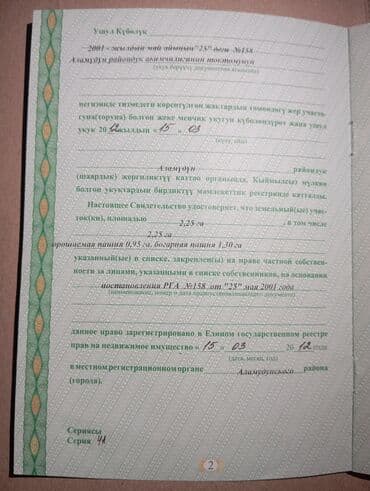 Ушул Күбөлүк
2001 - жылдын май айынын "25" деги №158
Аламүдүн райондук акимчилигинин токтомунун
(укук берүүчү документтин аталышы)
негизинде тизмедеги көрсөтүлгөн жактардын төмөндөгү жер участо-
гуна(торуна) болгон жеке менчик укугун күбөлөндүрөт жана ушул
укук 2012 жылдын « 15 » 03
(күнү, айы)
Аламүдүн райондук
(шаардык) жергиликтүү каттоо органында, Кыймылсыз мүлккө
болгон укуктардын бирдиктүү мамлекеттик реестринде катталды.
Настоящее Свидетельство удостоверяет, что земельный(ые) учас-
ток(ки), площадью 2,25 га , в том числе
2,25 га
орошаемая пашня 0,95 га, богарная пашня 1,30 га
указанный(ые) в списке, закреплен(ы) на праве частной собствен-
ности за лицами, указанными в списке собственников, на основании
постановления РГА №158 от "25" мая 2001 года
(наименование, номер и дата правоустанавливающего документа)
данное право зарегистрировано в Едином государственном реестре
прав на недвижимое имущество « 15 » 03 2012 года
(дата, месяц, год)
в местном регистрационном органе Аламудунского района
(города).
Сериясы
Серия ЧА
2